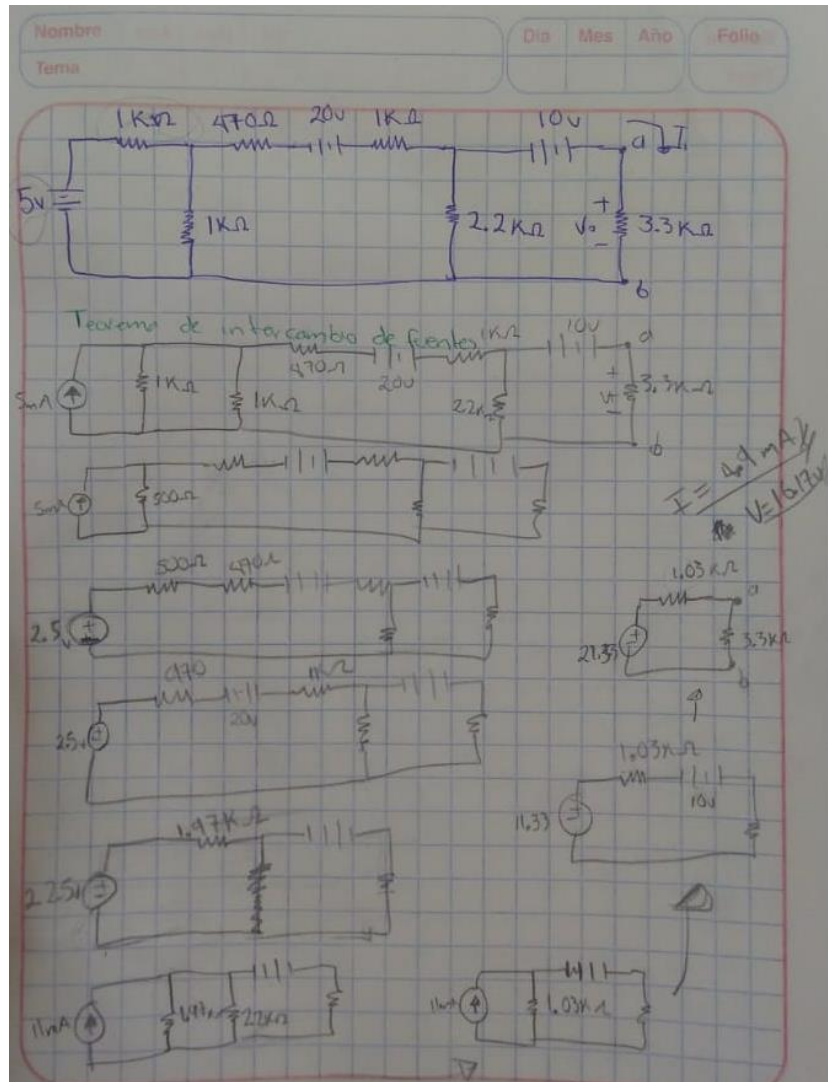 Nombre
Dia Mes Año Folio
Tema
1KΩ 470Ω 20v 1KΩ 10v a I
5v 1KΩ 2.2KΩ + Vo - 3.3KΩ
b
Teorema de intercambio de fuentes
470Ω 20v 1KΩ 10v a
5mA 1KΩ 1KΩ 22KΩ + - 3.3KΩ
b
I = 4.9 mA
V=16.17v
5mA 500Ω
500Ω 470Ω
2.5v
1.03KΩ a
21.33 3.3KΩ
b
970 1KΩ
20v
25v
1.03KΩ
10v
11.33
1.47KΩ
225v
11mA 22KΩ
11mA 1.03KΩ